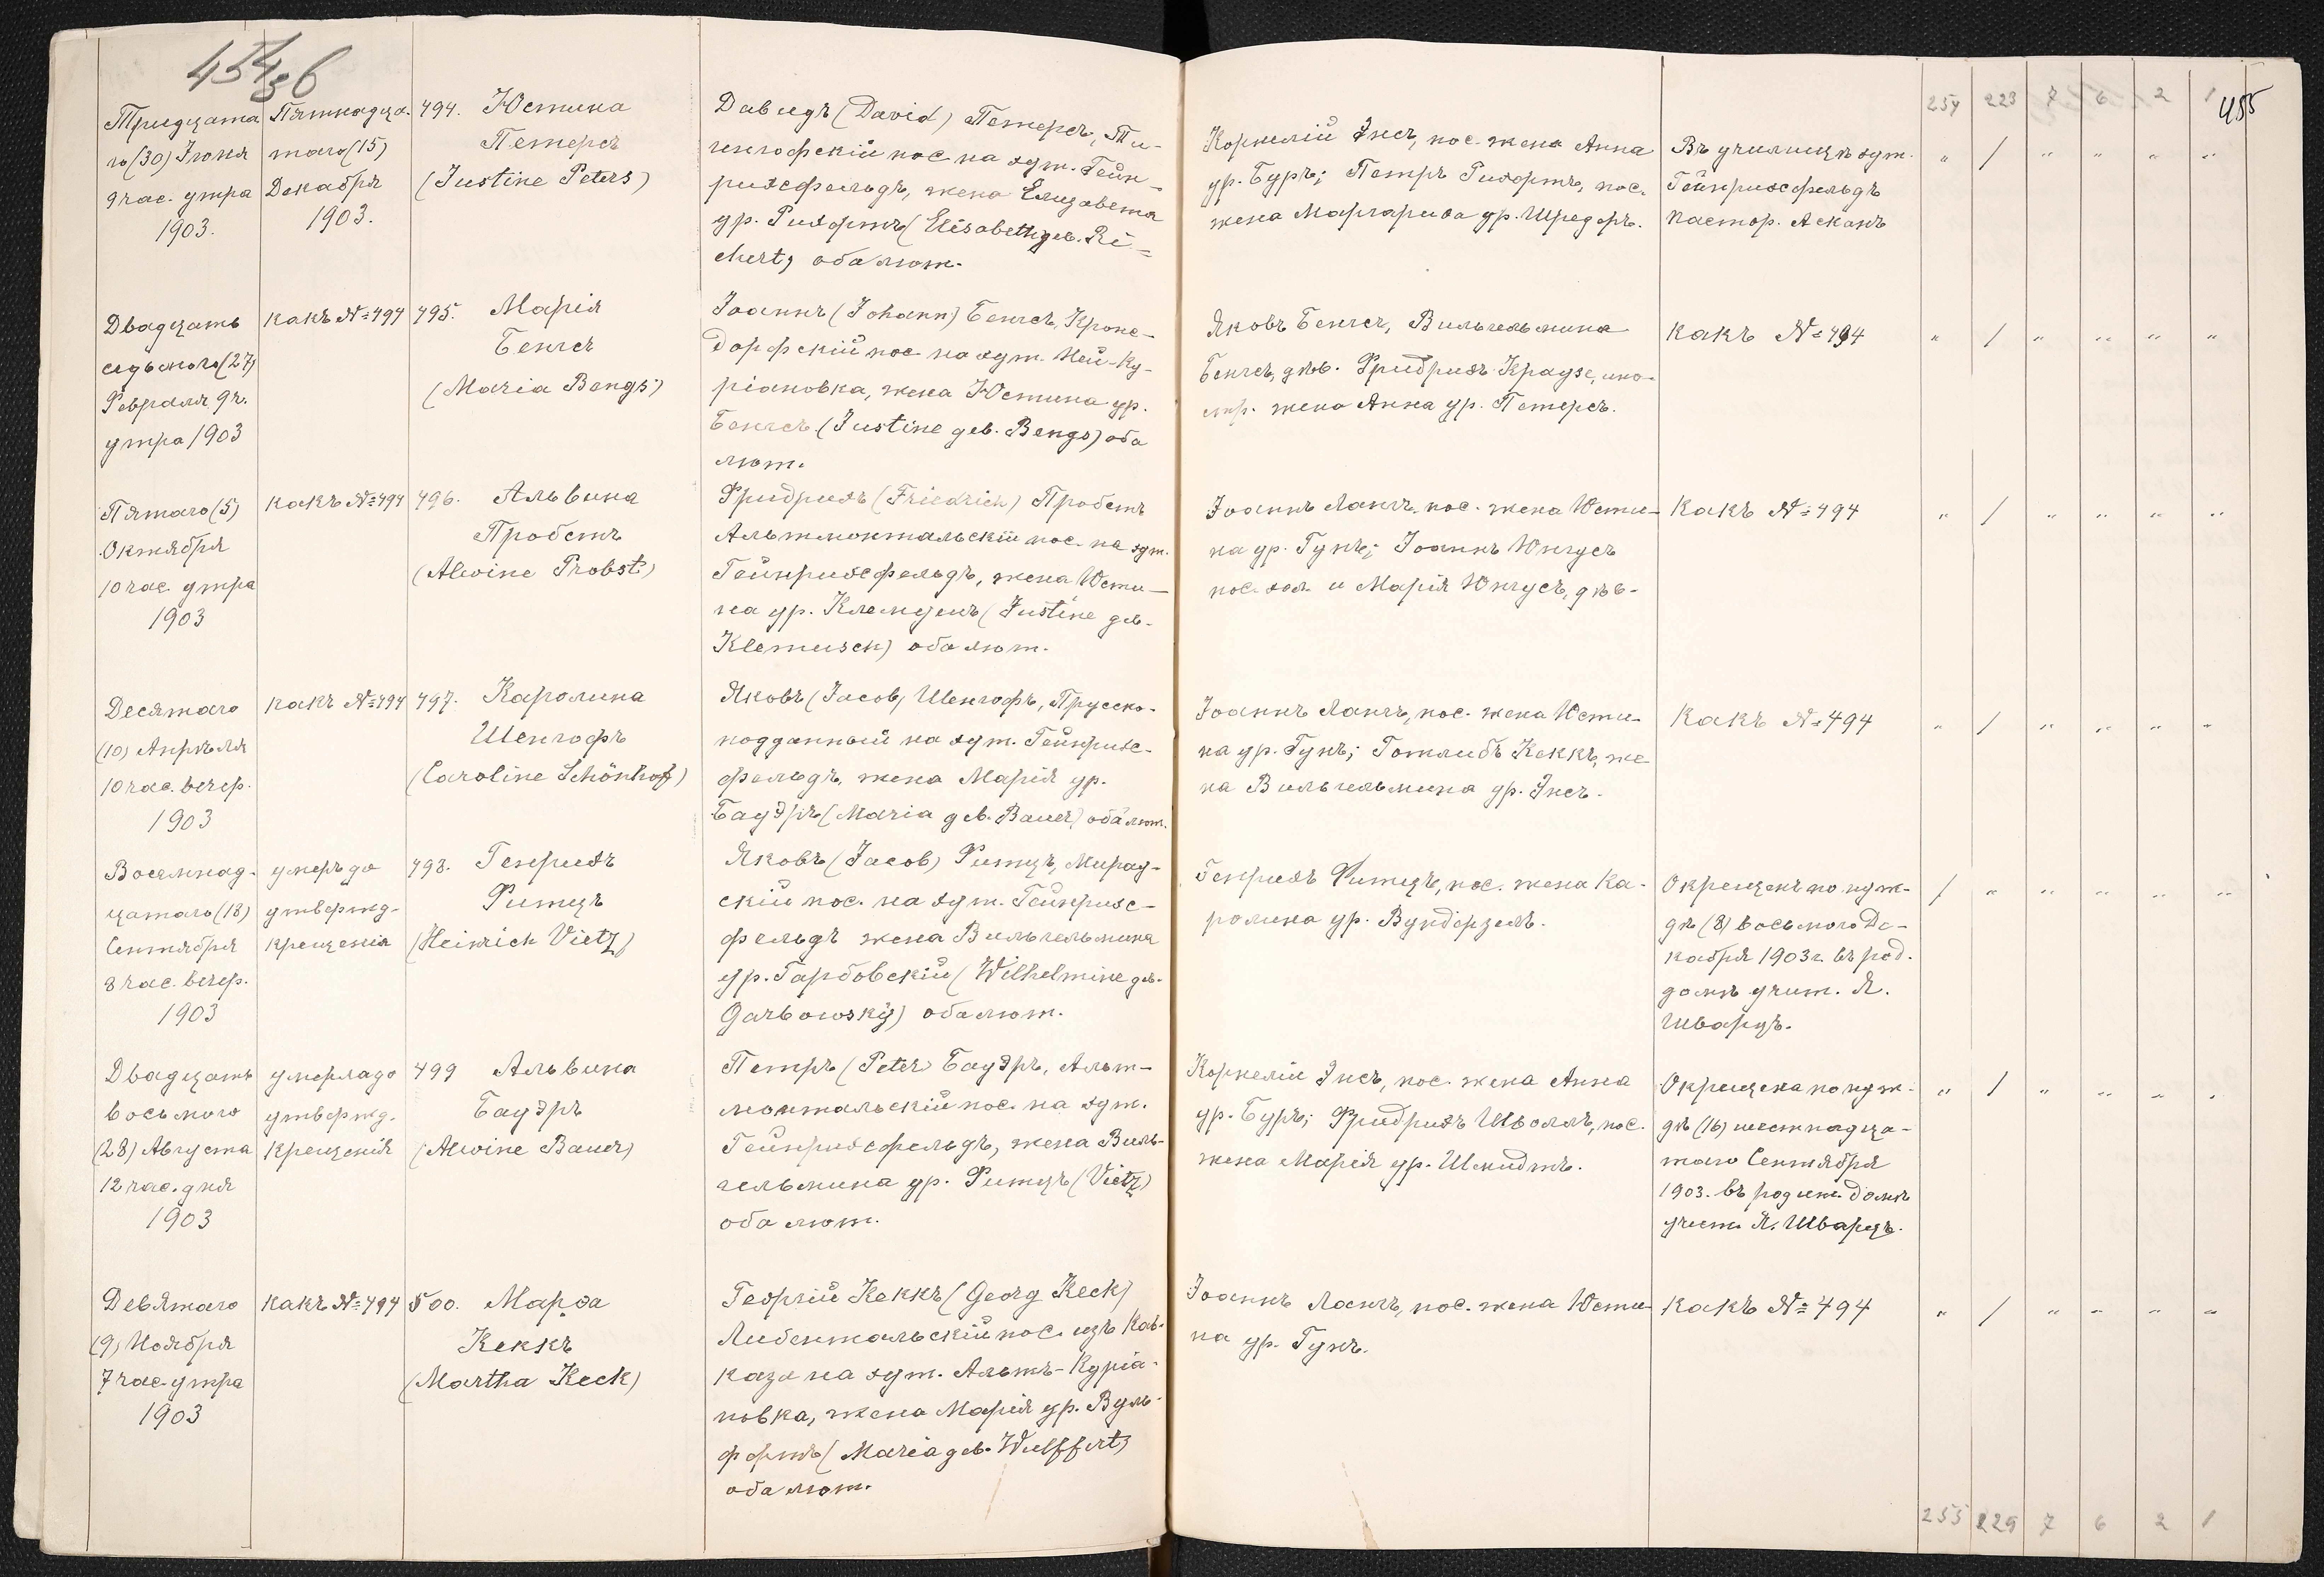 454
36
254 223 7 6 2 1
455
Тридцата-
го (30) Іюня
9 час. утра
1903.
Пятнадца-
таго (15)
Декабря
1903.
494. Юстина
Петерсъ
(Justine Peters)
Давидъ (David) Петерсъ, Ти-
генгофскій пос. на хут. Гейн-
рихсфельдъ, жена Елизавета
ур. Рихертъ (Elisabeth geb. Ri-
chert) оба лют.
Корнелій Энсъ, пос. жена Анна
ур. Буръ; Петръ Рихертъ, пос.
жена Маргарита ур. Шредеръ.
Въ училищѣ хут.
Гейнрихсфельдъ
пастор. Асканъ
" / " " " "
Двадцать
седьмого (27)
Февраля 9 ч.
утра 1903
какъ № 494
495. Марія
Бенгсъ
(Maria Bengs)
Іоаннъ (Johann) Бенгсъ, Кроне-
дорфскій пос. на хут. Ней-Ку-
ріановка, жена Юстина ур.
Бенгсъ (Justine geb. Bengs) оба
лют.
Яковъ Бенгсъ, Вильгельмина
Бенгсъ, дѣв. Фридрихъ Краузе, ино-
стр. жена Анна ур. Петерсъ.
какъ № 494
" / " " " "
Пятаго (5)
Октября
10 час. утра
1903
какъ № 494
496. Альвина
Пробстъ
(Alwine Probst)
Фридрихъ (Friedrich) Пробстъ
Альтмонтальскій пос. на хут.
Гейнрихсфельдъ, жена Юсти-
на ур. Клемушъ (Justine geb.
Klemusch) оба лют.
Іоаннъ Лангъ, пос. жена Юсти-
на ур. Гунъ; Іоаннъ Юнгусъ
пос. хол. и Марія Юнгусъ, дѣв.
Какъ № 494
" / " " " "
Десятаго
(10) Апрѣля
10 час. вечер.
1903
какъ № 494
497. Каролина
Шенгофъ
(Caroline Schönhof)
Яковъ (Jacob) Шенгофъ, Прусско-
подданный на хут. Гейнрихс-
фельдъ, жена Марія ур.
Бауэръ (Maria geb. Bauer) оба лют.
Іоаннъ Лангъ, пос. жена Юсти-
на ур. Гунъ; Готлибъ Кеккъ, же-
на Вильгельмина ур. Энсъ.
Какъ № 494
" / " " " "
Восемнад-
цатаго (18)
Сентября
8 час. вечер.
1903
умеръ до
утвержд.
крещенія
498. Генрихъ
Фитцъ
(Heinrich Vietz)
Яковъ (Jacob) Фитцъ, Мирау-
скій пос. на хут. Гейнрихс-
фельдъ жена Вильгельмина
ур. Гарбовскій (Wilhelmine geb.
Garbowsky) оба лют.
Генрихъ Фитцъ, пос. жена Ка-
ролина ур. Вундерзее.
Окрещенъ по нуж-
дѣ (8) восьмого Де-
кабря 1903 г. въ род.
домѣ учит. Я.
Шварцъ.
/ " " " " "
Двадцать
восьмого
(28) Августа
12 час. дня
1903
умерла до
утвержд.
крещенія
499 Альвина
Бауэръ
(Alwine Bauer)
Петръ (Peter) Бауэръ, Альт-
монтальскій пос. на хут.
Гейнрихсфельдъ, жена Виль-
гельмина ур. Фитцъ (Vietz)
оба лют.
Корнелій Энсъ, пос. жена Анна
ур. Буръ; Фридрихъ Шволлъ, пос.
жена Марія ур. Шмидтъ.
Окрещена по нуж-
дѣ (16) шестнадца-
таго Сентября
1903. въ родит. домѣ
учит. Я. Шварцъ.
" / " " " "
Девятаго
(9) Ноября
7 час. утра
1903
какъ № 494
500. Марѳа
Кеккъ
(Martha Keck)
Георгій Кеккъ (Georg Keck)
Либентальскій пос. изъ Кав-
каза на хут. Альтъ-Куріа-
новка, жена Марія ур. Вуль-
фертъ (Maria geb. Wulffert)
оба лют.
Іоаннъ Лангъ, пос. жена Юсти-
на ур. Гунъ.
Какъ № 494
" / " " " "
255 229 7 6 2 1